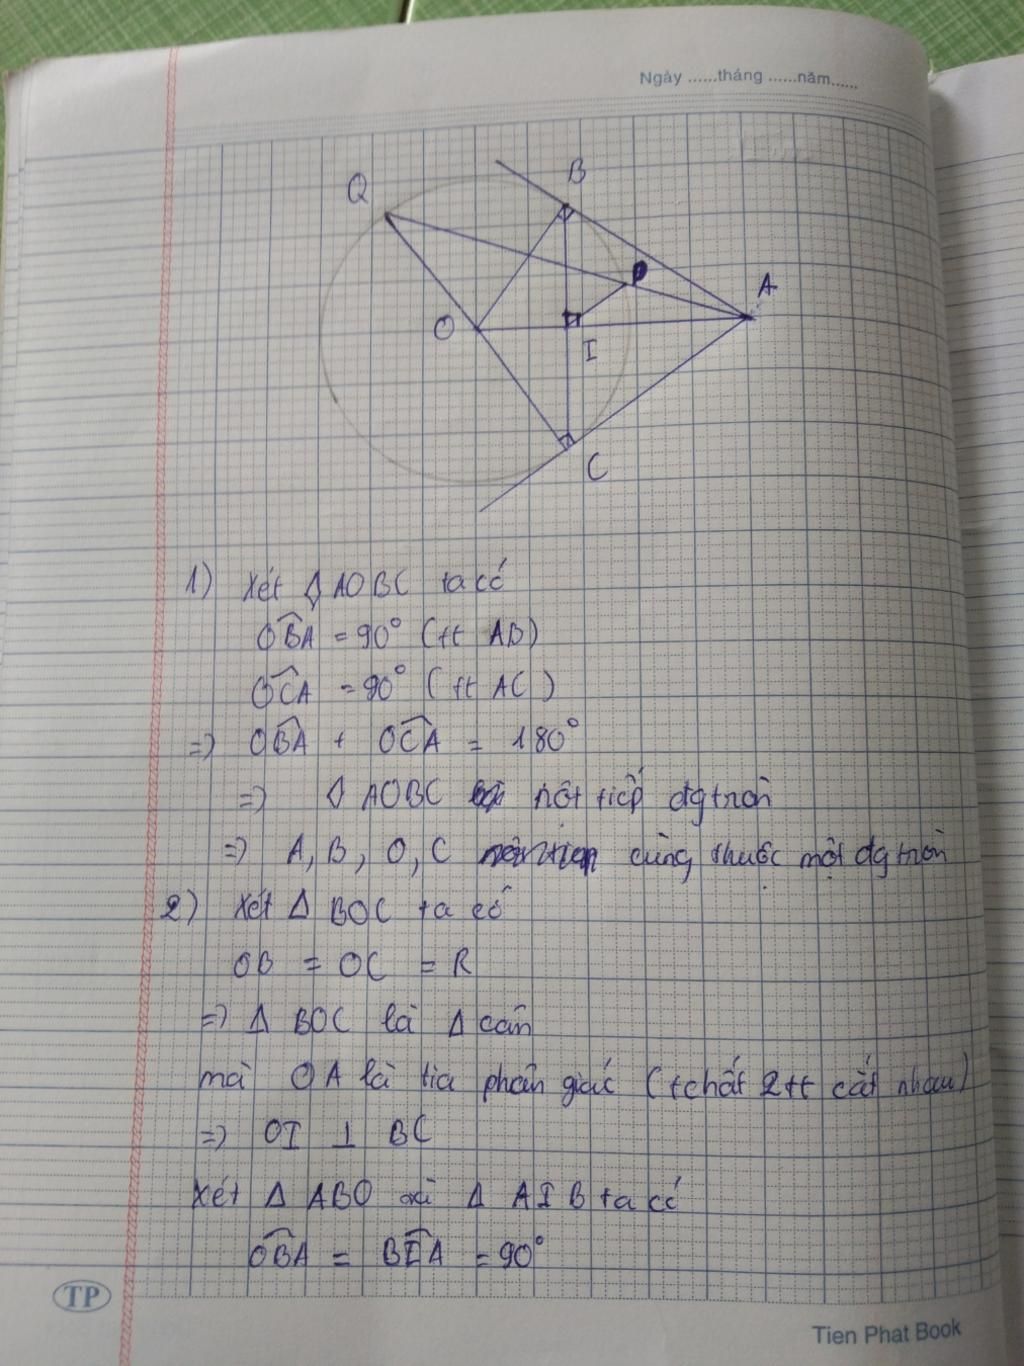 Ngày ......tháng ......năm......
Q
B
P
A
O
I
C
1) Xét ◊ AOBC ta có
OBA = 90° (tt AB)
OCA = 90° (tt AC)
=> OBA + OCA = 180°
=> ◊ AOBC nội tiếp đgtròn
=> A, B, O, C cùng thuộc một đgtròn
2) Xét Δ BOC ta có
OB = OC = R
=> Δ BOC là Δ cân
mà OA là tia phân giác (tchất 2tt cắt nhau)
=> OI ⊥ BC
Xét Δ ABO và Δ AIB ta có
OBA = BIA = 90°
TP
Tien Phat Book